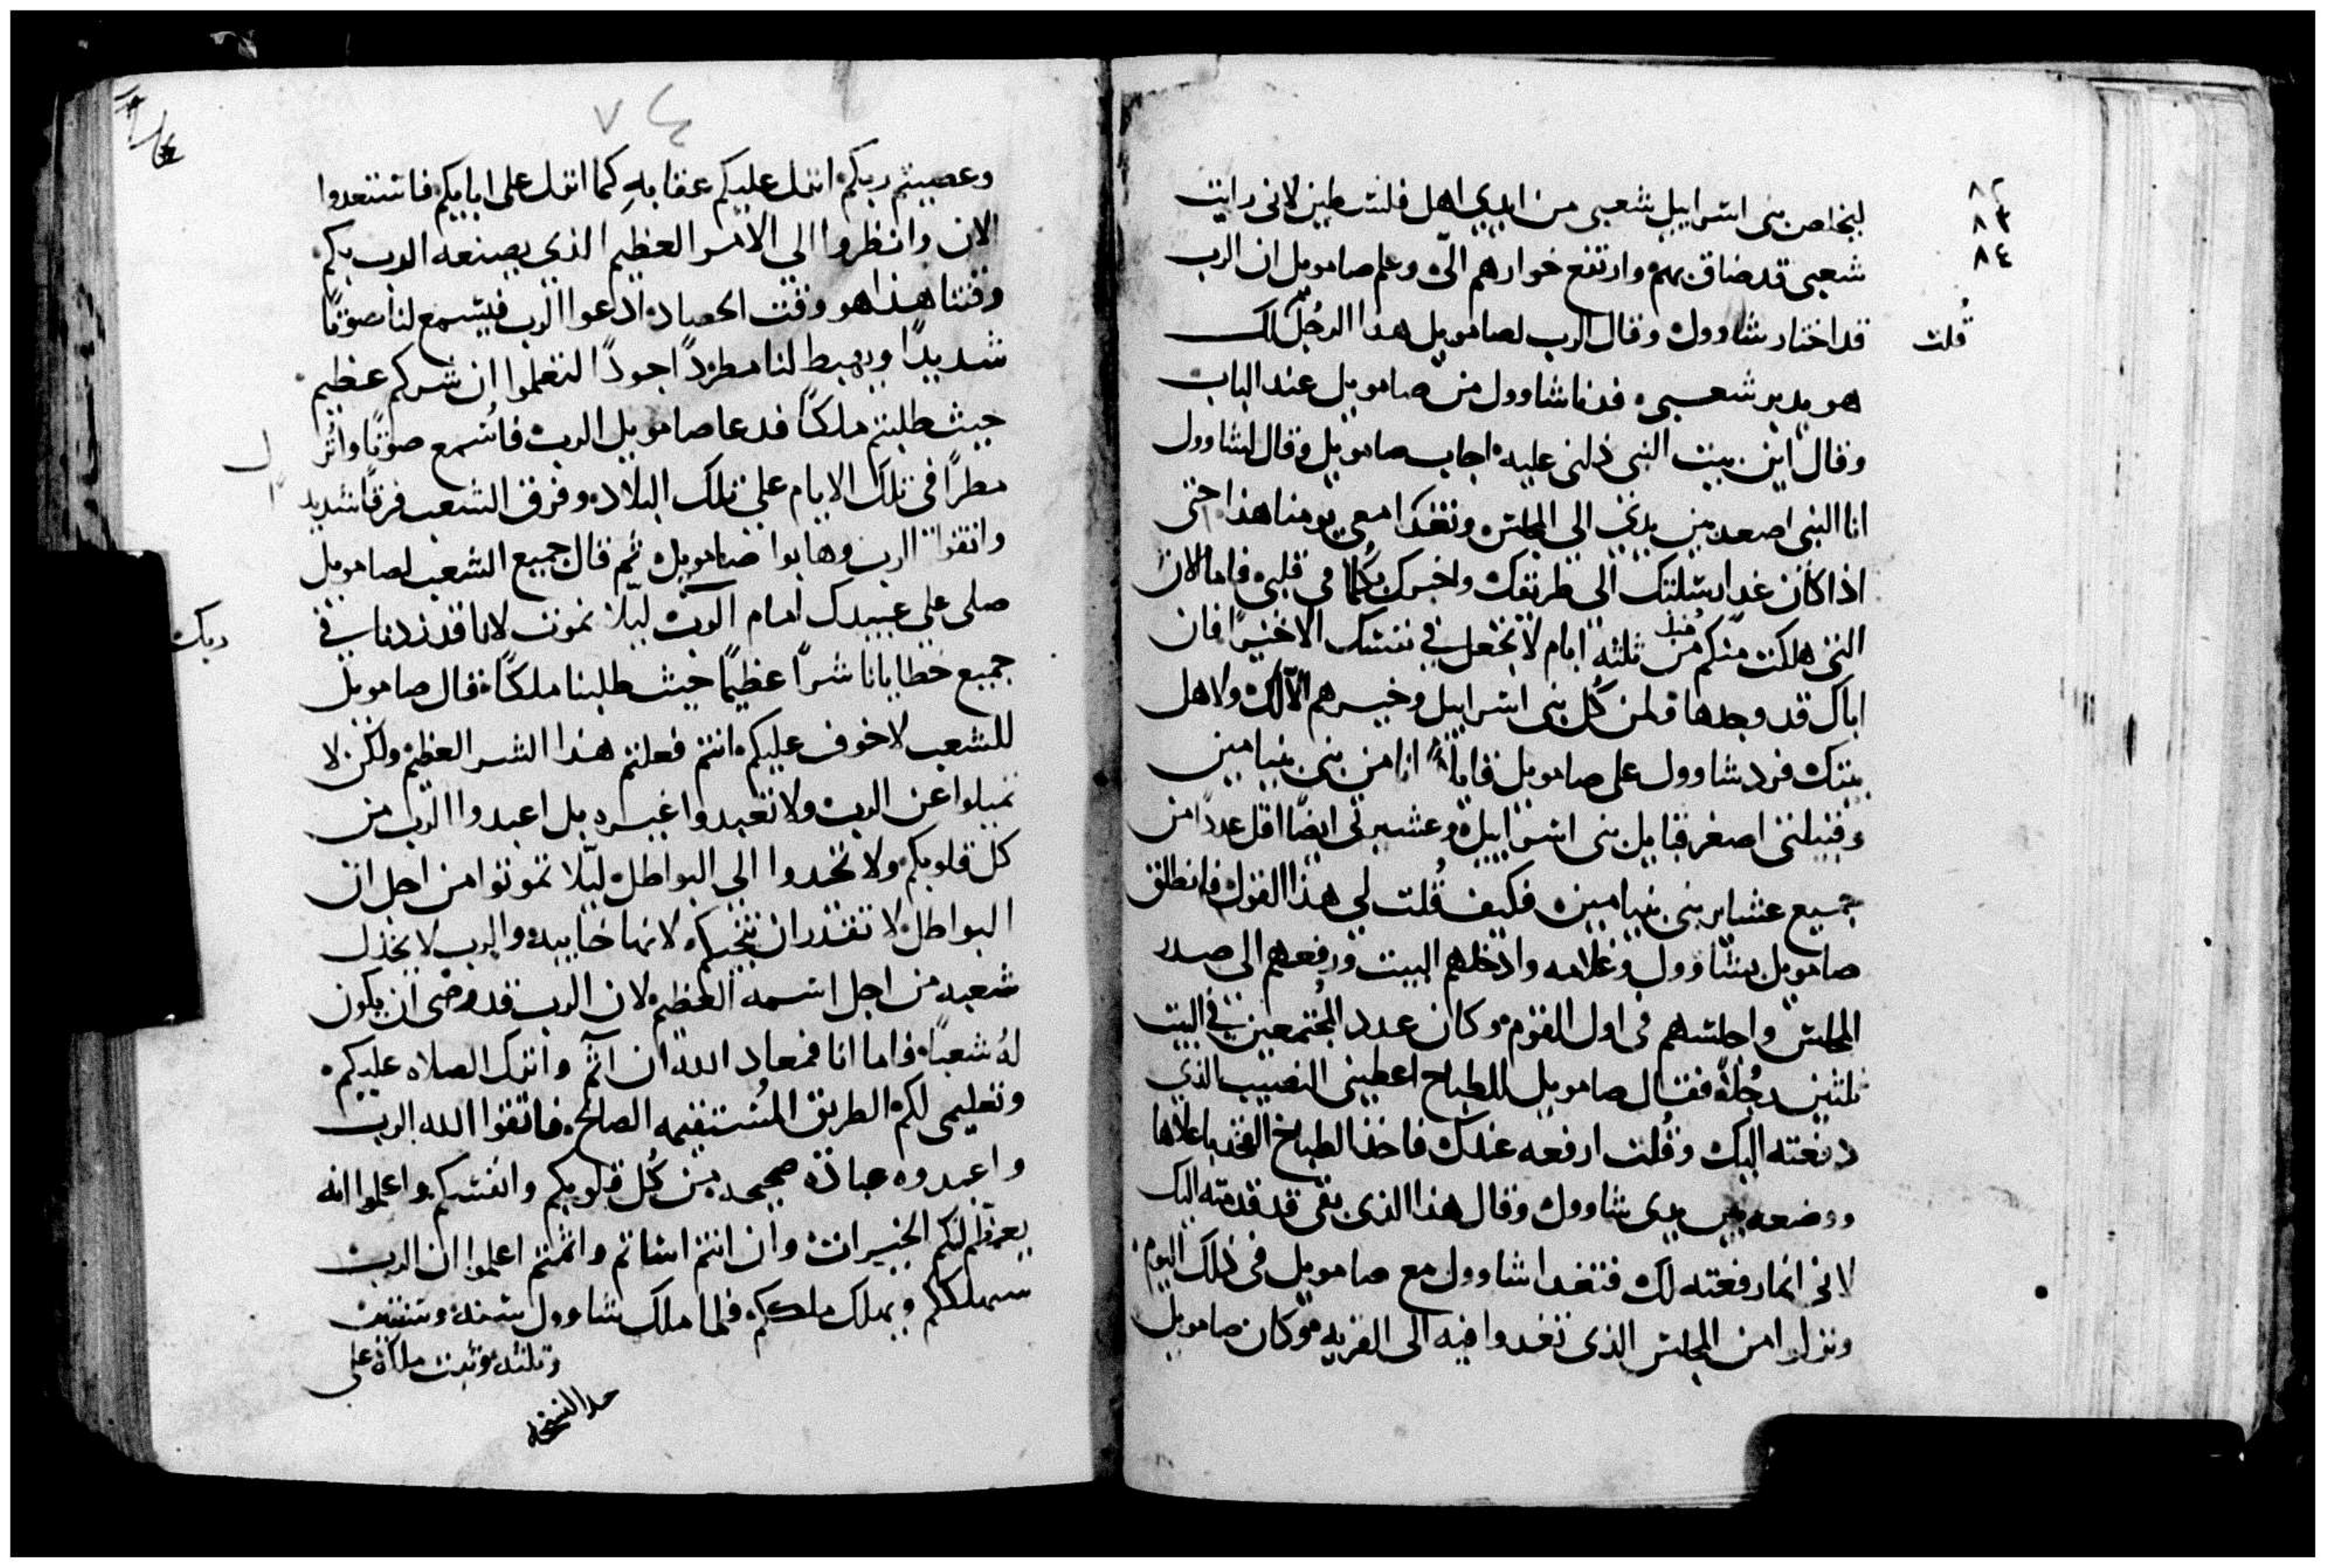 ٨٢
٨٣
٨٤
ليخلص بنى اسراييل شعبى من ايدى اهل فلسطين لانى رايت
شعبى قد ضاق بهم وارتفع خوارهم الىّ وعلم صامويل ان الرب
قد اختار شاوول وقال الرب لصامويل هدا الرجُل لك
قُلت
هو يدبر شعبى فدنا شاوول من صامويل عند الباب
وقال اين بيت النبى دلنى عليه اجاب صامويل وقال لشاوول
انا النبى اصعد بين يدى الى المجلس وتغدا معى يومنا هذا حتى
اذا كان غدا ارسلتك الى طريقك واخبرك بكلما فى قلبك فاما الاتن
التى هلكت منكم من قبل ثلثه ايام لا تجعل فى نفسك الا خيرًا فان
اباك قد وجدها ولمن كُل بنى اسراييل وخيرهم الّا لك ولاهل
بيتك فرد شاوول على صامويل قايلًا انا من بنى بنيامين
وقبيلتى اصغر قبايل بنى اسراييل وعشيرتى ايضًا اقل عددًا من
جميع عشاير بنى بنيامين فكيف قُلت لى هذا القول فانطلق
صامويل بشاوول وغلامه وادخلهم البيت ورفعهم الى صدر
المجلس واجلسهم فى اول القوم وكان عدد المجتمعين فى البيت
ثلثين رجُلًا فقال صامويل للطباخ اعطينى النصيب الذى
دفعته اليك وقُلت ارفعه عندك فاخذ الطباخ الفخد باعلاها
ووضعه بين يدى شاوول وقال هذا الذى بقى قد قدمته اليك
لانى انما رفعته لك فتغدا شاوول مع صامويل فى ذلك اليوم
ونزلوا من المجلس الذى تغدوا فيه الى القريه وكان صامويل
٧٤
وعصيتم ربكم انزل عليكم عقابهِ كما انزل على ابايكم فاستعدوا
الان وانظروا الى الامر العظيم الذى يصنعه الرب بكم
وقتنا هذا هو وقت الحصاد ادعوا الرب فيسمع لنا صوتًا
شديدًا ويهبط لنا مطرًا جودًا لتعلموا ان شركم عظيم
حيث طلبتم ملكًا فدعا صامويل الرب فاُسمع صوتًا وانزل
مطرًا فى تلك الايام على تلك البلاد وفرق الشعب فرقًا شديدا
واتقوا الرب وهابوا صامويل ثم قال جميع الشعب لصامويل
صلى على عبيدك امام الرب ربك ليّلا نموت لانا قد زدنا فى
جميع خطايانا شرًا عظيمًا حيث طلبنا ملكًا قال صامويل
للشعب لا خوف عليكم انتم فعلتم هذا الشر العظيم ولكن لا
تميلوا عن الرب ولا تعبدوا غيره بل اعبدوا الرب من
كل قلوبكم ولا تحدوا الى البواطل ليّلا تموتوا من اجل ان
البواطل لا تقدر ان تنجيكم لانها خايبه والرب لا يخذل
شعبه من اجل اسمه العظيم لان الرب قد رضى ان يكون
لهُ شعبًا فاما انا فمعاد الله ان آثم واترك الصلاه عليكم
وتعليمى لكم الطريق المُستقيمه الصالحه فاتقوا الله الرب
واعبدوه عبادة صحيحه من كُل قلوبكم وانفسكم واعلموا انه
يعظم لكم الخيرات وان انتم اساتم واثمتم اعلموا ان الرب
سيهلككم ويهلك ملككم فلما ملك شاوول سنه وسنتين
وثلثه وثبت ملكه على